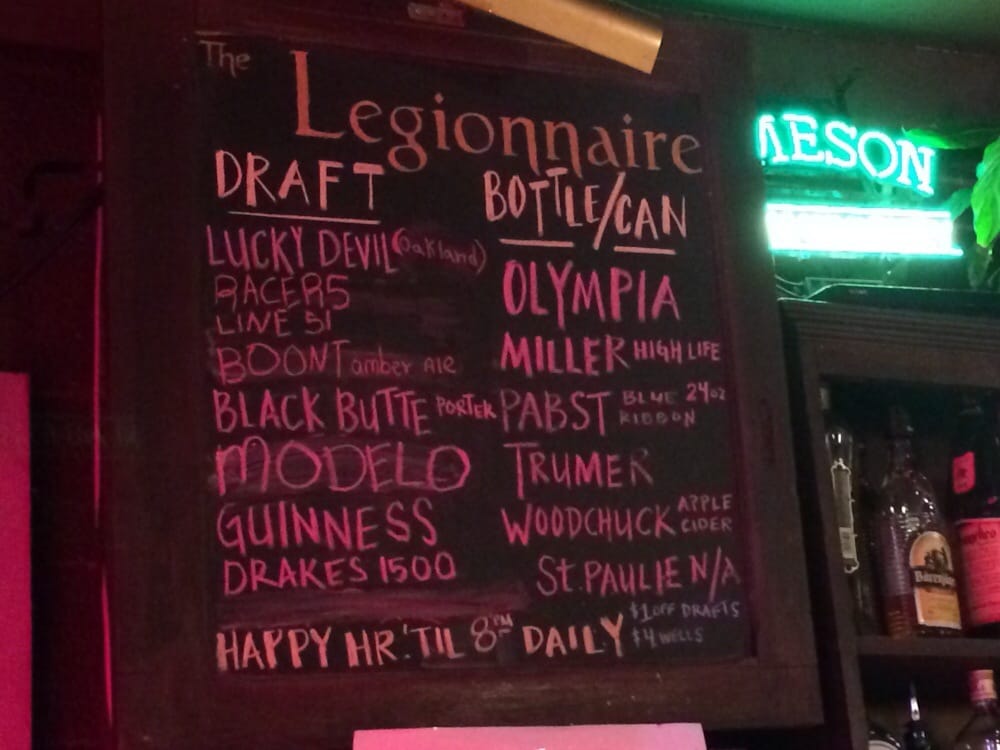 The
Legionnaire
DRAFT
LUCKY DEVIL (Oakland)
RACER 5
LINE 51
BOONT amber Ale
BLACK BUTTE PORTER
MODELO
GUINNESS
DRAKES 1500
BOTTLE/CAN
OLYMPIA
MILLER HIGH LIFE
PABST BLUE RIBBON 24oz
TRUMER
WOODCHUCK APPLE CIDER
ST. PAULIE N/A
HAPPY HR. 'TIL 8PM DAILY
$1 OFF DRAFTS
$4 WELLS
MESON